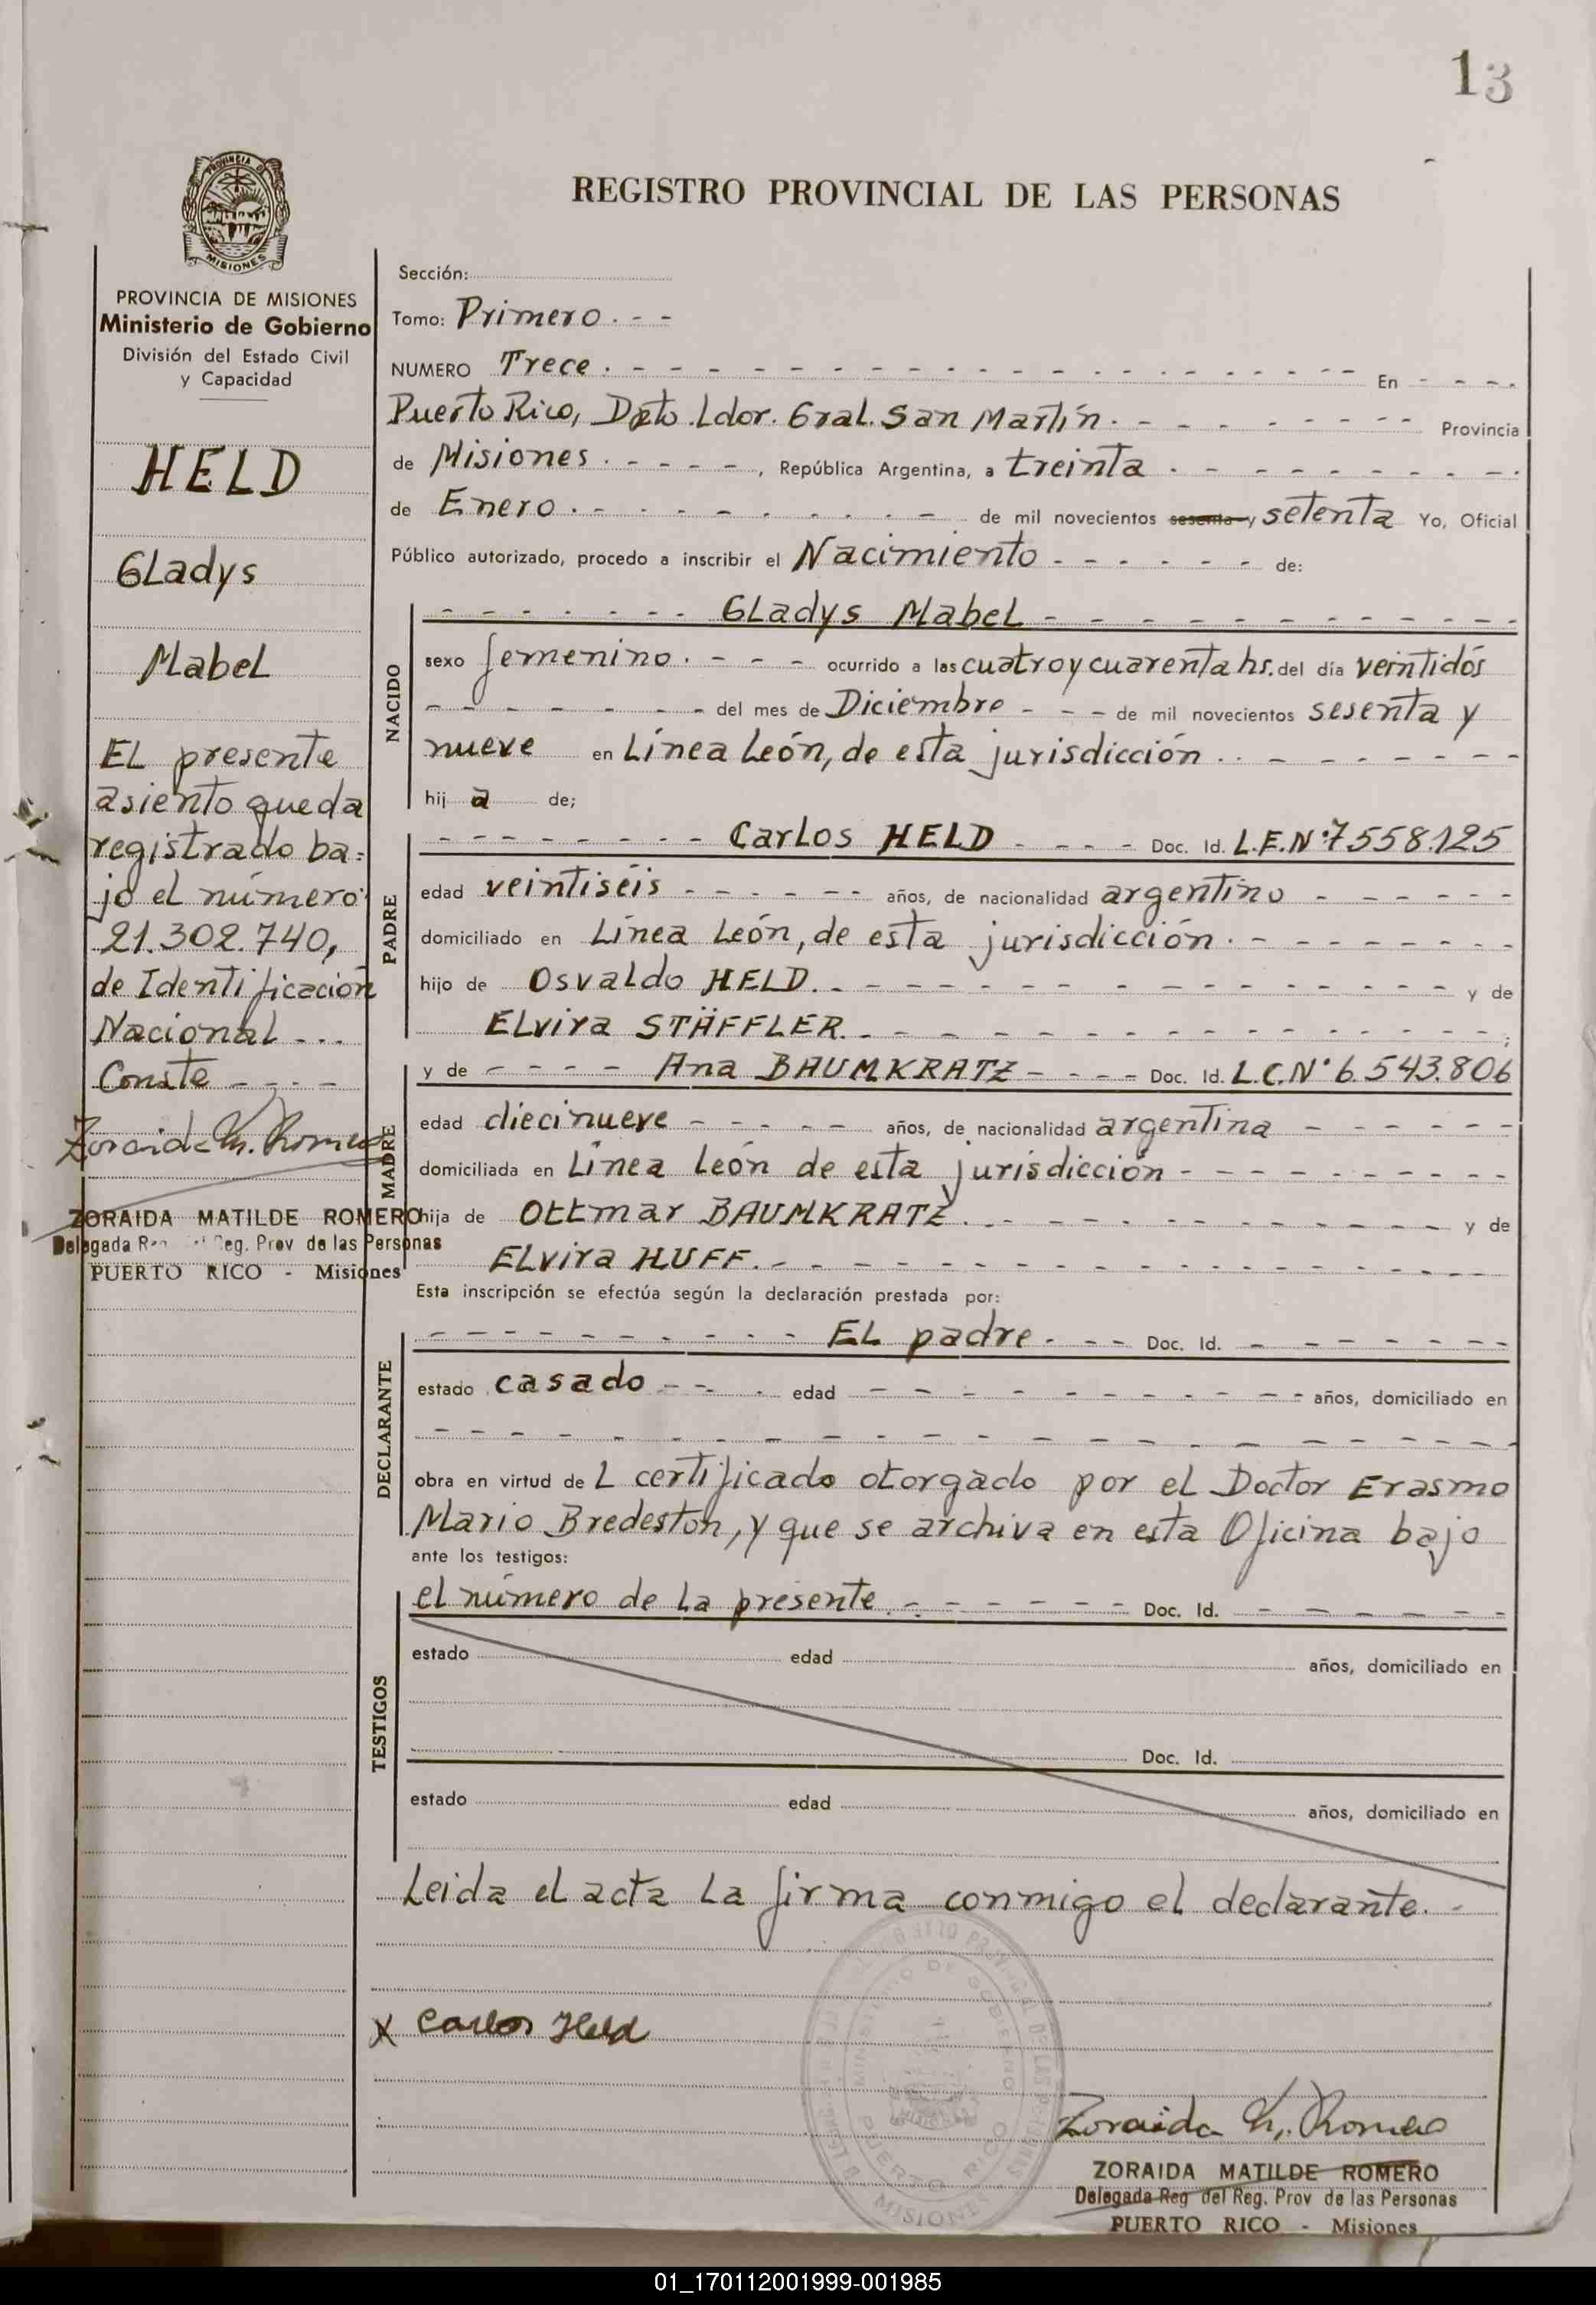 13
REGISTRO PROVINCIAL DE LAS PERSONAS
PROVINCIA DE MISIONES
Ministerio de Gobierno
División del Estado Civil
y Capacidad
HELD
Gladys
Mabel
El presente
asiento queda
registrado ba=
jo el número
21.302.740,
de Identificación
Nacional ---
Conste - - - -
Zoraida M. Romero
ZORAIDA MATILDE ROMERO
Delegada Reg. Prov de las Personas
PUERTO RICO - Misiones
Sección:
Tomo: Primero. - -
NUMERO Trece. - - - - En - - - -
Puerto Rico, Dpto. Ldor. Gral. San Martín. - - - - Provincia
de Misiones. - - - -, República Argentina, a treinta. - - - -
de Enero. - - - - de mil novecientos sesenta y setenta Yo, Oficial
Público autorizado, procedo a inscribir el Nacimiento - - - - de:
NACIDO
- - - - Gladys Mabel - - - -
sexo femenino. - - - ocurrido a las cuatro y cuarenta hs. del día veintidós
- - - - del mes de Diciembre - - - de mil novecientos sesenta y
nueve en Línea León, de esta jurisdicción. - - - -
hij a de;
PADRE
- - - - Carlos HELD - - - - Doc. Id. L.E.Nº 7558.125
edad veintiséis - - - - años, de nacionalidad argentino - - - -
domiciliado en Línea León, de esta jurisdicción. - - - -
hijo de Osvaldo HELD. - - - - y de
Elvira STÄFFLER. - - - - ;
MADRE
y de - - - - Ana BAUMKRATZ - - - - Doc. Id. L.C.Nº 6.543.806
edad diecinueve - - - - años, de nacionalidad argentina - - - -
domiciliada en Línea León de esta jurisdicción - - - -
hija de Ottmar BAUMKRATZ. - - - - y de
Elvira HUFF. - - - -
Esta inscripción se efectúa según la declaración prestada por:
DECLARANTE
- - - - El padre. - - - Doc. Id. - - - -
estado casado - - - edad - - - - años, domiciliado en
- - - -
obra en virtud de l certificado otorgado por el Doctor Erasmo
Mario Bredeston, y que se archiva en esta Oficina bajo
ante los testigos:
TESTIGOS
el número de la presente. - - - - Doc. Id. - - - -
estado edad años, domiciliado en
Doc. Id.
estado edad años, domiciliado en
Leida el acta la firma conmigo el declarante. -
x Carlos Held
MINISTERIO DE GOBIERNO
PUERTO RICO
MISIONES
Zoraida M. Romero
ZORAIDA MATILDE ROMERO
Delegada Reg del Reg. Prov de las Personas
PUERTO RICO - Misiones
01_170112001999-001985